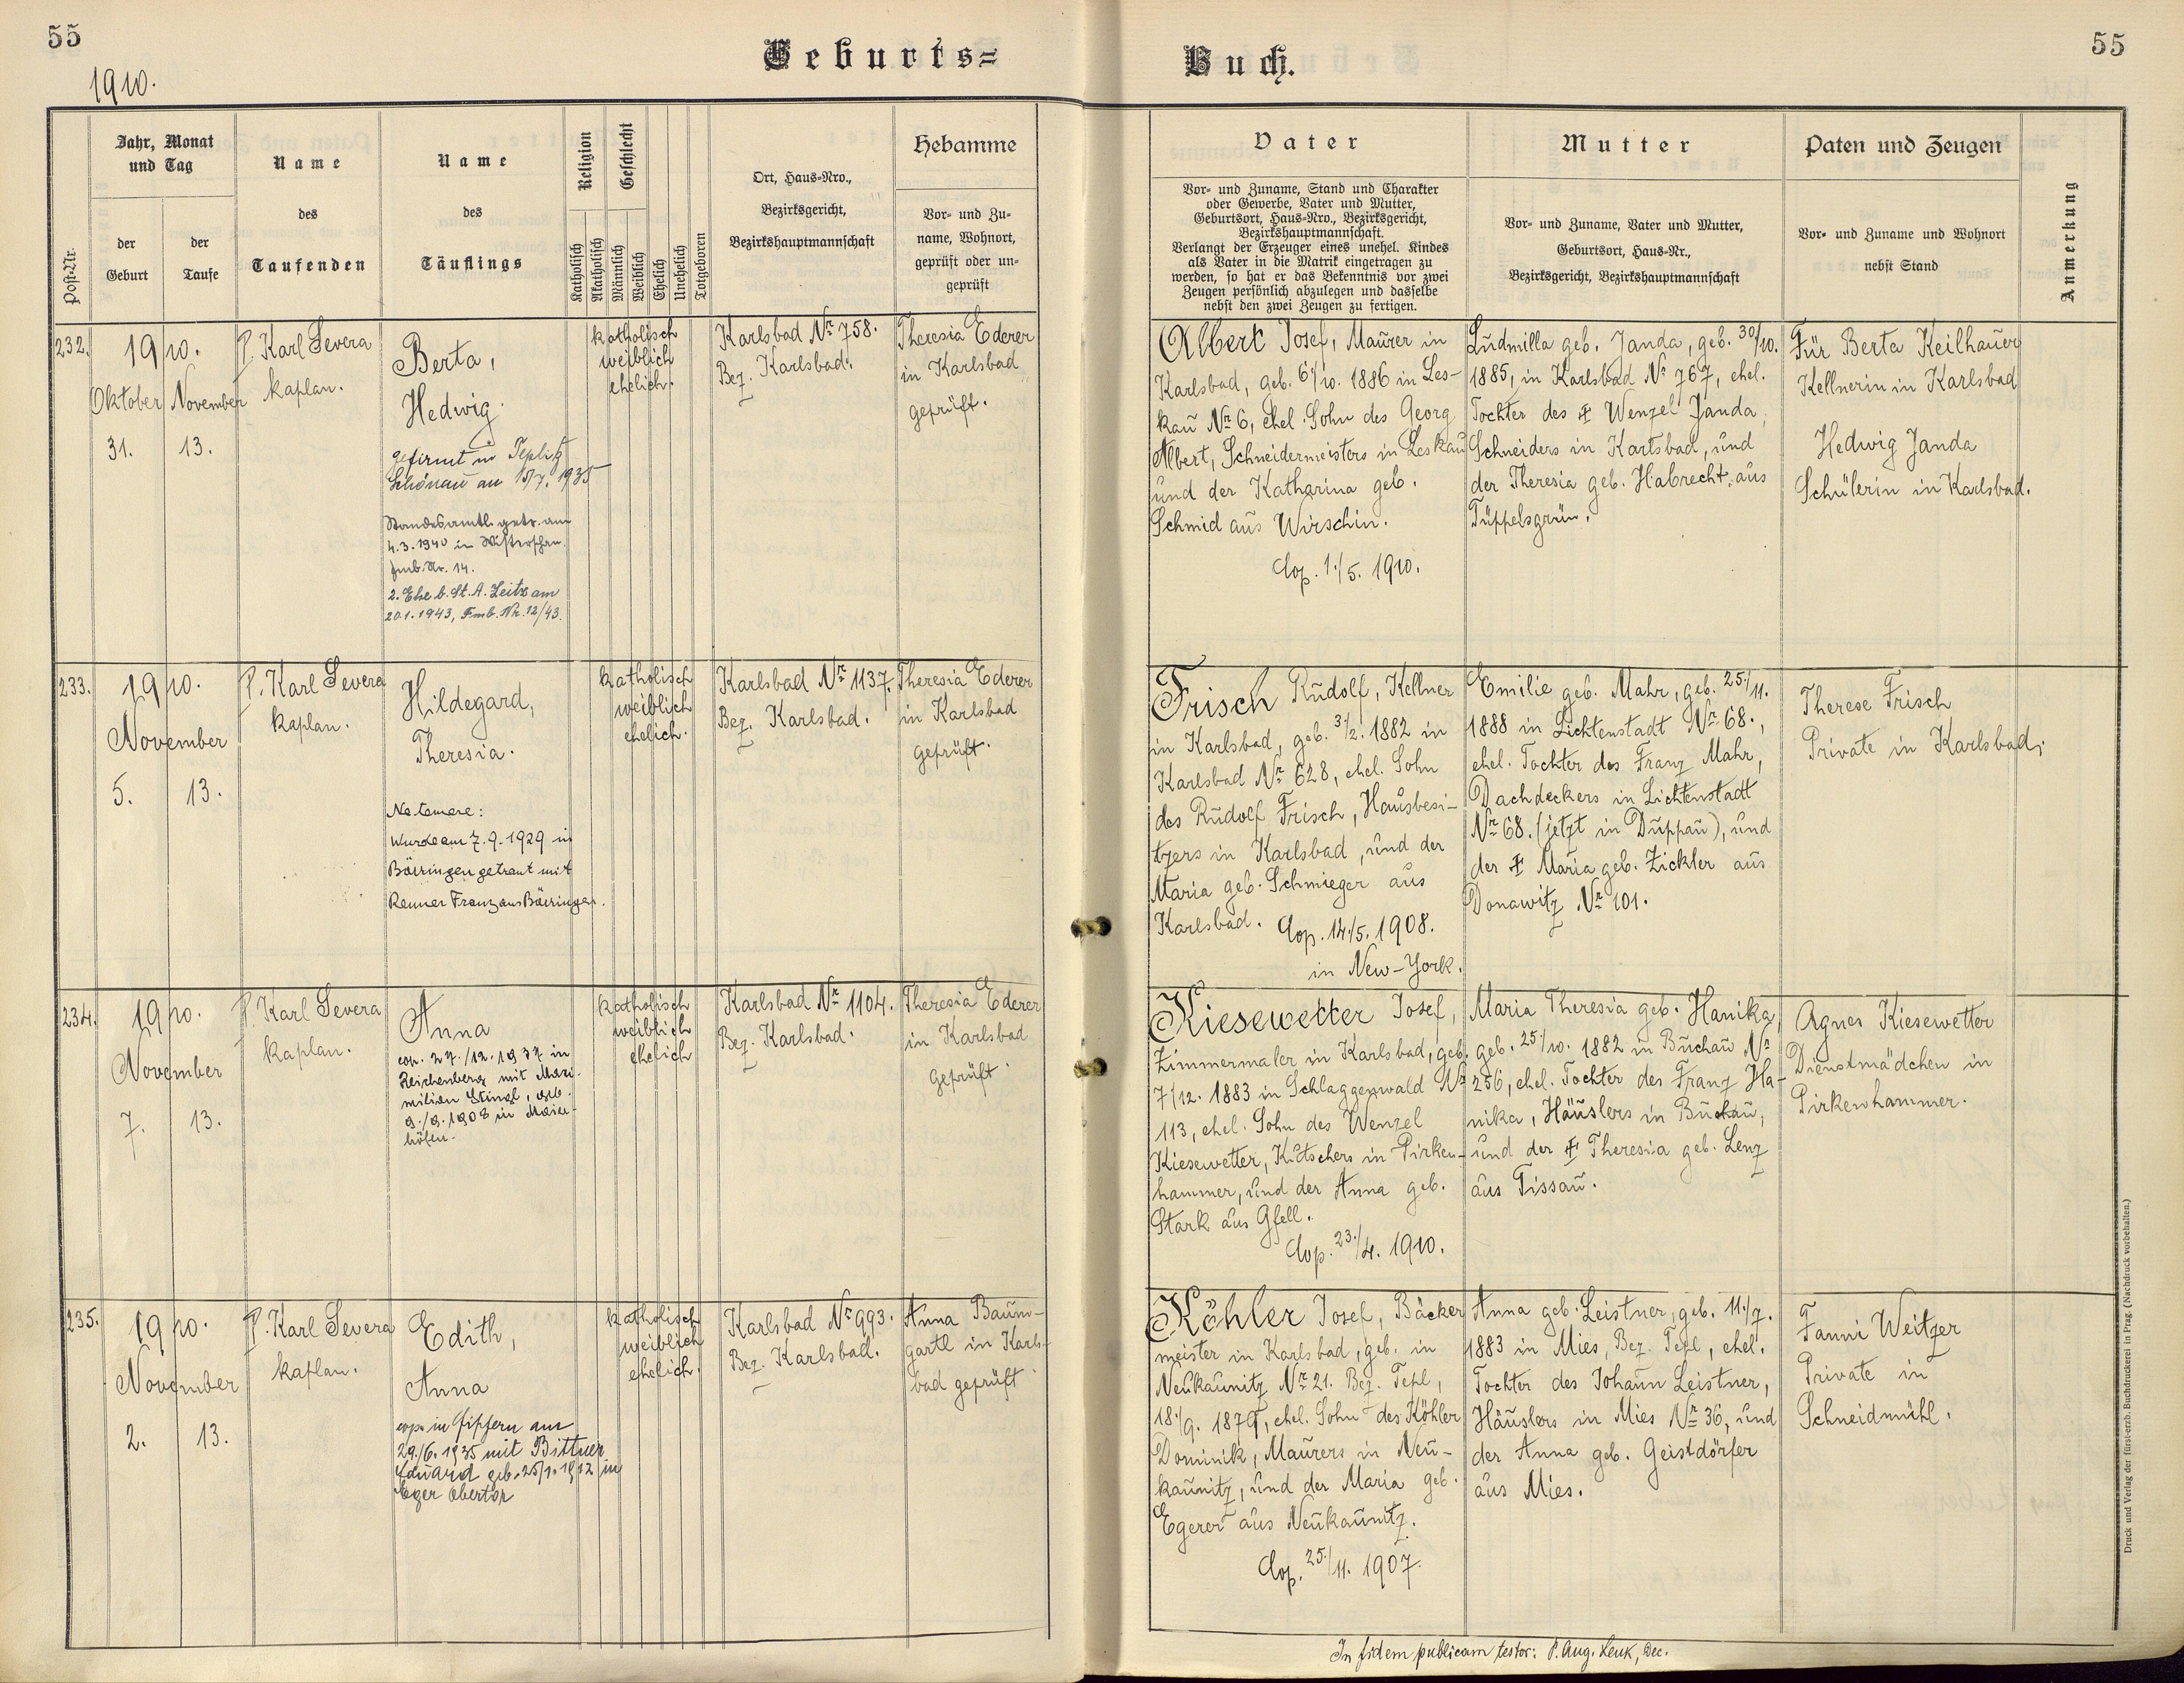 55
1910.
Geburts=
Post-Nr.
Jahr, Monat
und Tag
der
Geburt
der
Taufe
Name
des
Taufenden
Name
des
Täuflings
Religion
Katholisch
Akatholisch
Geschlecht
Männlich
Weiblich
Ehelich
Unehelich
Totgeboren
Ort, Haus-Nro.,
Bezirksgericht,
Bezirkshauptmannschaft
Hebamme
Vor- und Zu-
name, Wohnort,
geprüft oder un-
geprüft
232.
1910.
Oktober
31.
November
13.
P. Karl Severa
kaplan.
Berta,
Hedwig.
gefirmt in Teplitz
Schönau am 15/7. 1935
Standesamtl. getr. am
4.3.1940 in
Fmb. Nr. 14.
2. Ehe b. St. A. Zeitz am
20.1.1943, Fmb. Nr. 12/43.
katholisch
weiblich
ehelich.
Karlsbad Nr 758.
Bez. Karlsbad.
Theresia Ederer
in Karlsbad
geprüft.
233.
1910.
November
5.
13.
P. Karl Severa
kaplan.
Hildegard,
Theresia.
Ne temere:
Wurde am 7.9.1929 in
Bäringen getraut mit
Renner Franz aus Bäringen.
katholisch
weiblich
ehelich.
Karlsbad Nr 1137.
Bez. Karlsbad.
Theresia Ederer
in Karlsbad
geprüft.
234.
1910.
November
7.
13.
P. Karl Severa
kaplan.
Anna
cop. 27./12. 1937 in
Reichenberg mit Maxi-
milian Stingl, geb.
9./9. 1908 in Maier-
höfen.
katholisch
weiblich
ehelich
Karlsbad Nr 1104.
Bez. Karlsbad.
Theresia Ederer
in Karlsbad
geprüft.
235.
1910.
November
2.
13.
P. Karl Severa
kaplan.
Edith,
Anna
cop. in am
29./6. 1935 mit Bittner
Eduard geb. 25/1. 1912 in
Eger Obertor
katholisch
weiblich
ehelich.
Karlsbad Nr 993.
Bez. Karlsbad.
Anna Baum-
gartl in Karls-
bad geprüft.
Buch.
55
Vater
Vor- und Zuname, Stand und Charakter
oder Gewerbe, Vater und Mutter,
Geburtsort, Haus-Nro., Bezirksgericht,
Bezirkshauptmannschaft.
Verlangt der Erzeuger eines unehel. Kindes
als Vater in die Matrik eingetragen zu
werden, so hat er das Bekenntnis vor zwei
Zeugen persönlich abzulegen und dasselbe
nebst den zwei Zeugen zu fertigen.
Mutter
Vor- und Zuname, Vater und Mutter,
Geburtsort, Haus-Nr.,
Bezirksgericht, Bezirkshauptmannschaft
Paten und Zeugen
Vor- und Zuname und Wohnort
nebst Stand
Anmerkung
Albert Josef, Maurer in
Karlsbad, geb. 6/10. 1886 in Les-
kau Nr 6, ehel. Sohn des Georg
Albert, Schneidermeisters in Leskau
und der Katharina geb.
Schmid aus Wirschin.
Cop. 1./5. 1910.
Ludmilla geb. Janda, geb. 30/10.
1885, in Karlsbad Nr 767, ehel.
Tochter des ‡ Wenzel Janda,
Schneiders in Karlsbad, und
der Theresia geb. Habrecht, aus
Tüppelsgrün.
Für Berta Keilhauer
Kellnerin in Karlsbad
Hedwig Janda
Schülerin in Karlsbad.
Frisch Rudolf, Kellner
in Karlsbad, geb. 3/2. 1882 in
Karlsbad Nr 628, ehel. Sohn
des Rudolf Frisch, Hausbesi-
tzers in Karlsbad, und der
Maria geb. Schmieger aus
Karlsbad. Cop. 14/5. 1908.
in New-York.
Emilie geb. Mahr, geb. 25./11.
1888 in Lichtenstadt Nr 68.,
ehel. Tochter des Franz Mahr,
Dachdeckers in Lichtenstadt
Nr 68. (jetzt in Duppau), und
der ‡ Maria geb. Zickler aus
Donawitz Nr 101.
Therese Frisch
Private in Karlsbad.
Kiesewetter Josef,
Zimmermaler in Karlsbad, geb.
7/12. 1883 in Schlaggenwald Nr
113, ehel. Sohn des Wenzel
Kiesewetter, Kutschers in Pirken-
hammer, und der Anna geb.
Stark aus Gfell.
Cop. 23./4. 1910.
Maria Theresia geb. Hanika,
geb. 25./10. 1882 in Buchau Nr
256, ehel. Tochter des Franz Ha-
nika, Häuslers in Buchau,
und der ‡ Theresia geb. Lenz
aus Tissau.
Agnes Kiesewetter
Dienstmädchen in
Pirkenhammer.
Köhler Josef, Bäcker
meister in Karlsbad, geb. in
Neukaunitz Nr 21. Bez. Tepl,
18./9. 1879, ehel. Sohn des Köhler
Dominik, Maurers in Neu-
kaunitz, und der Maria geb.
Egerer aus Neukaunitz.
Cop. 25./11. 1907.
Anna geb. Leistner, geb. 11./7.
1883 in Mies, Bez. Tepl, ehel.
Tochter des Johann Leistner,
Häuslers in Mies Nr 36, und
der Anna geb. Geistdörfer
aus Mies.
Fanni Weitzer
Private in
Schneidmühl.
In fidem publicam testor: P. Aug. Leuk, Dec.
Druck und Verlag der fürst-erzb. Buchdruckerei in Prag. (Nachdruck vorbehalten.)